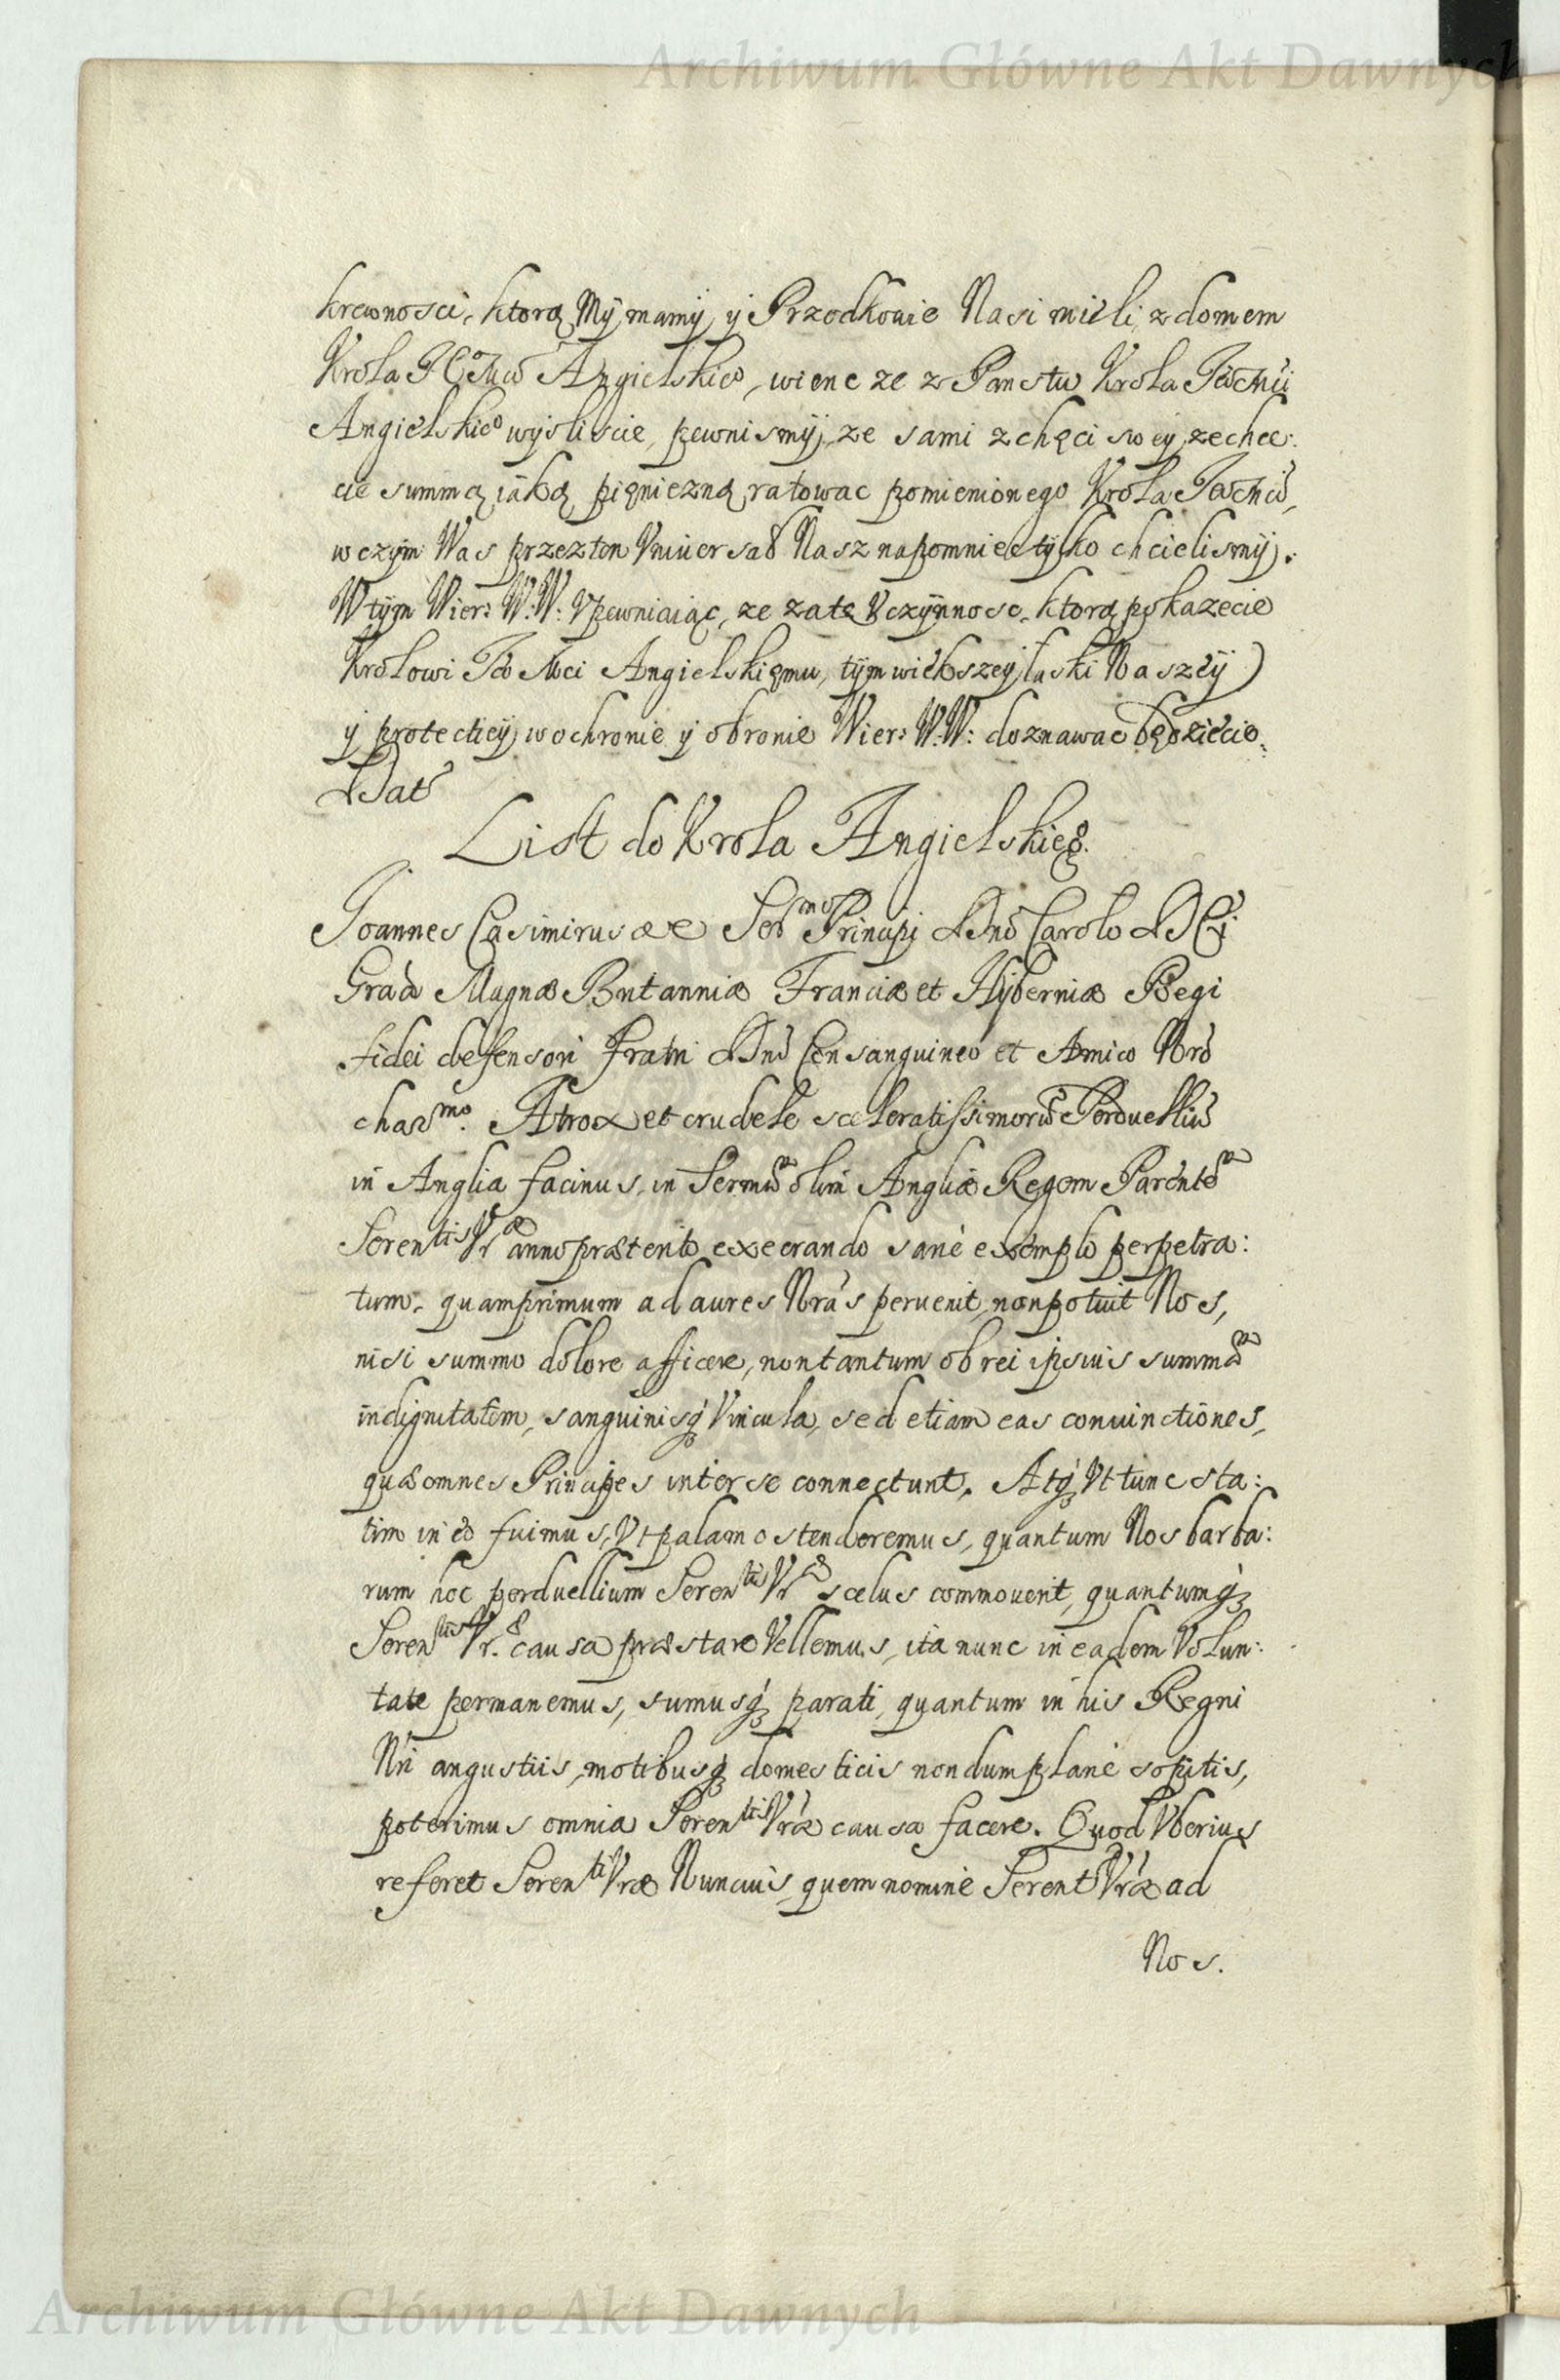 Archiwum Główne Akt Dawnych
krewnosci, ktorą My mamy, y Przodkowie Nasi mieli, z domem
Krola Angielskieo, wiene ze z Panstw Krola Jeo Mci
Angielskieo wyśliscie, pewnismy, ze sami z chęci swey zechce:
cie summą iaką pięniezną ratowac pomienionego Krola
w czym Was przez ten Vniuersał Nasz napomniec tylko chcielismy.
W tym Wier: W.W: Vpewniaiąc, ze za tę Vczynnosc, ktorą pokazecie
Krolowi Jeo Mci Angielskięmu, tym wiekszey łaski Naszey
y protectiey, w ochronie y obronie Wier: W.W: doznawac będziecie.
Dat
List do Krola Angielskieg.
Joannes Casimirus &c Ser mo Principi Dno Carolo DEi
Gratia Magnæ Britanniæ Franciæ et Hyberniæ Regi
fidei defensori Fratri Dno Consanguineo et Amico Nro
char mo. Atrox et crudele sceleratissimorū Perduelliū
in Anglia facinus, in Sermū olim Angliæ Regem Parentē
Seren tis Vræ anno præterito execrando sanè exemplo perpetra:
tum, quamprimum ad aures Nras peruenit, non potuit Nos,
nisi summo dolore afficere, non tantum ob rei ipsius summā
indignitatem, sanguinisq Vincula, sed etiam eas conuinctiones,
quæ omnes Principes inter se connectunt. Atq Vt tunc sta:
tim in eo fuimus, Vt palam ostenderemus, quantum Nos barba:
rum hoc perduellium Seren tis Vræ scelus commouerit, quantumq
Seren tis Vræ causa præstare Vellemus, ita nunc in eadem Volun:
tate permanemus, sumusq parati, quantum in his Regni
Nri angustiis, motibusq domesticis nondum planè sopitis,
poterimus omnia Seren tis Vræ causa facere. Quod Vberius
referet Seren ti Vræ Nuncius, quem nomine Serentis Vræ ad
Nos.
Archiwum Główne Akt Dawnych